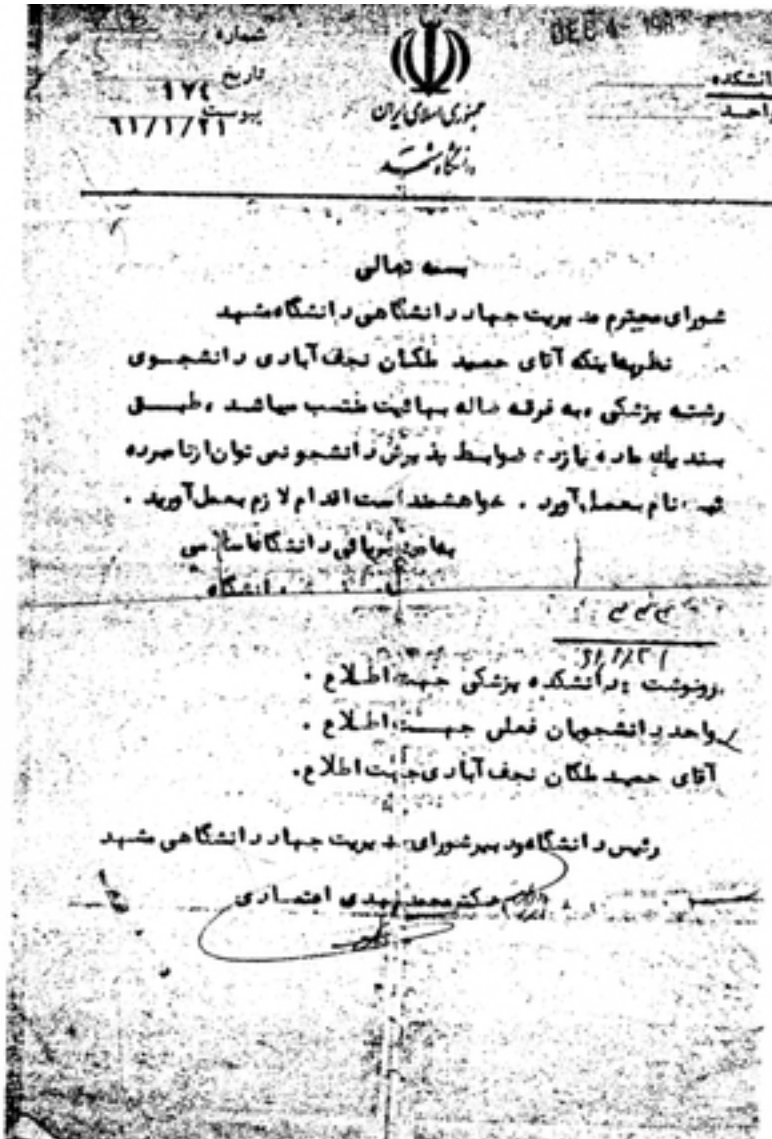 شماره
DEC 4- 198
تاریخ
۱۷٤
دانشکده
پیوست
۶۱/۱/۲۱
واحد
جمهوری اسلامی ایران
دانشگاه مشهد
بسمه تعالی
شورای محترم مدیریت جهاد دانشگاهی دانشگاه مشهد
نظر به اینکه آقای حمید ملکان نجف آبادی دانشجوی
رشته پزشکی ، به فرقه ضاله بهائیت منتسب میباشد ، طبق
بند یک ماده یازده ضوابط پذیرش دانشجو نمی توان از نامبرده
ثبت نام بعمل آورد . خواهشمند است اقدام لازم بعمل آورید .
دانشگاه
رونوشت : دانشکده پزشکی جهت اطلاع .
واحد دانشجویان فعلی جهت اطلاع .
آقای حمید ملکان نجف آبادی جهت اطلاع .
رئیس دانشگاه و دبیر شورای مدیریت جهاد دانشگاهی مشهد
دکتر محمد مهدی اعتمادی